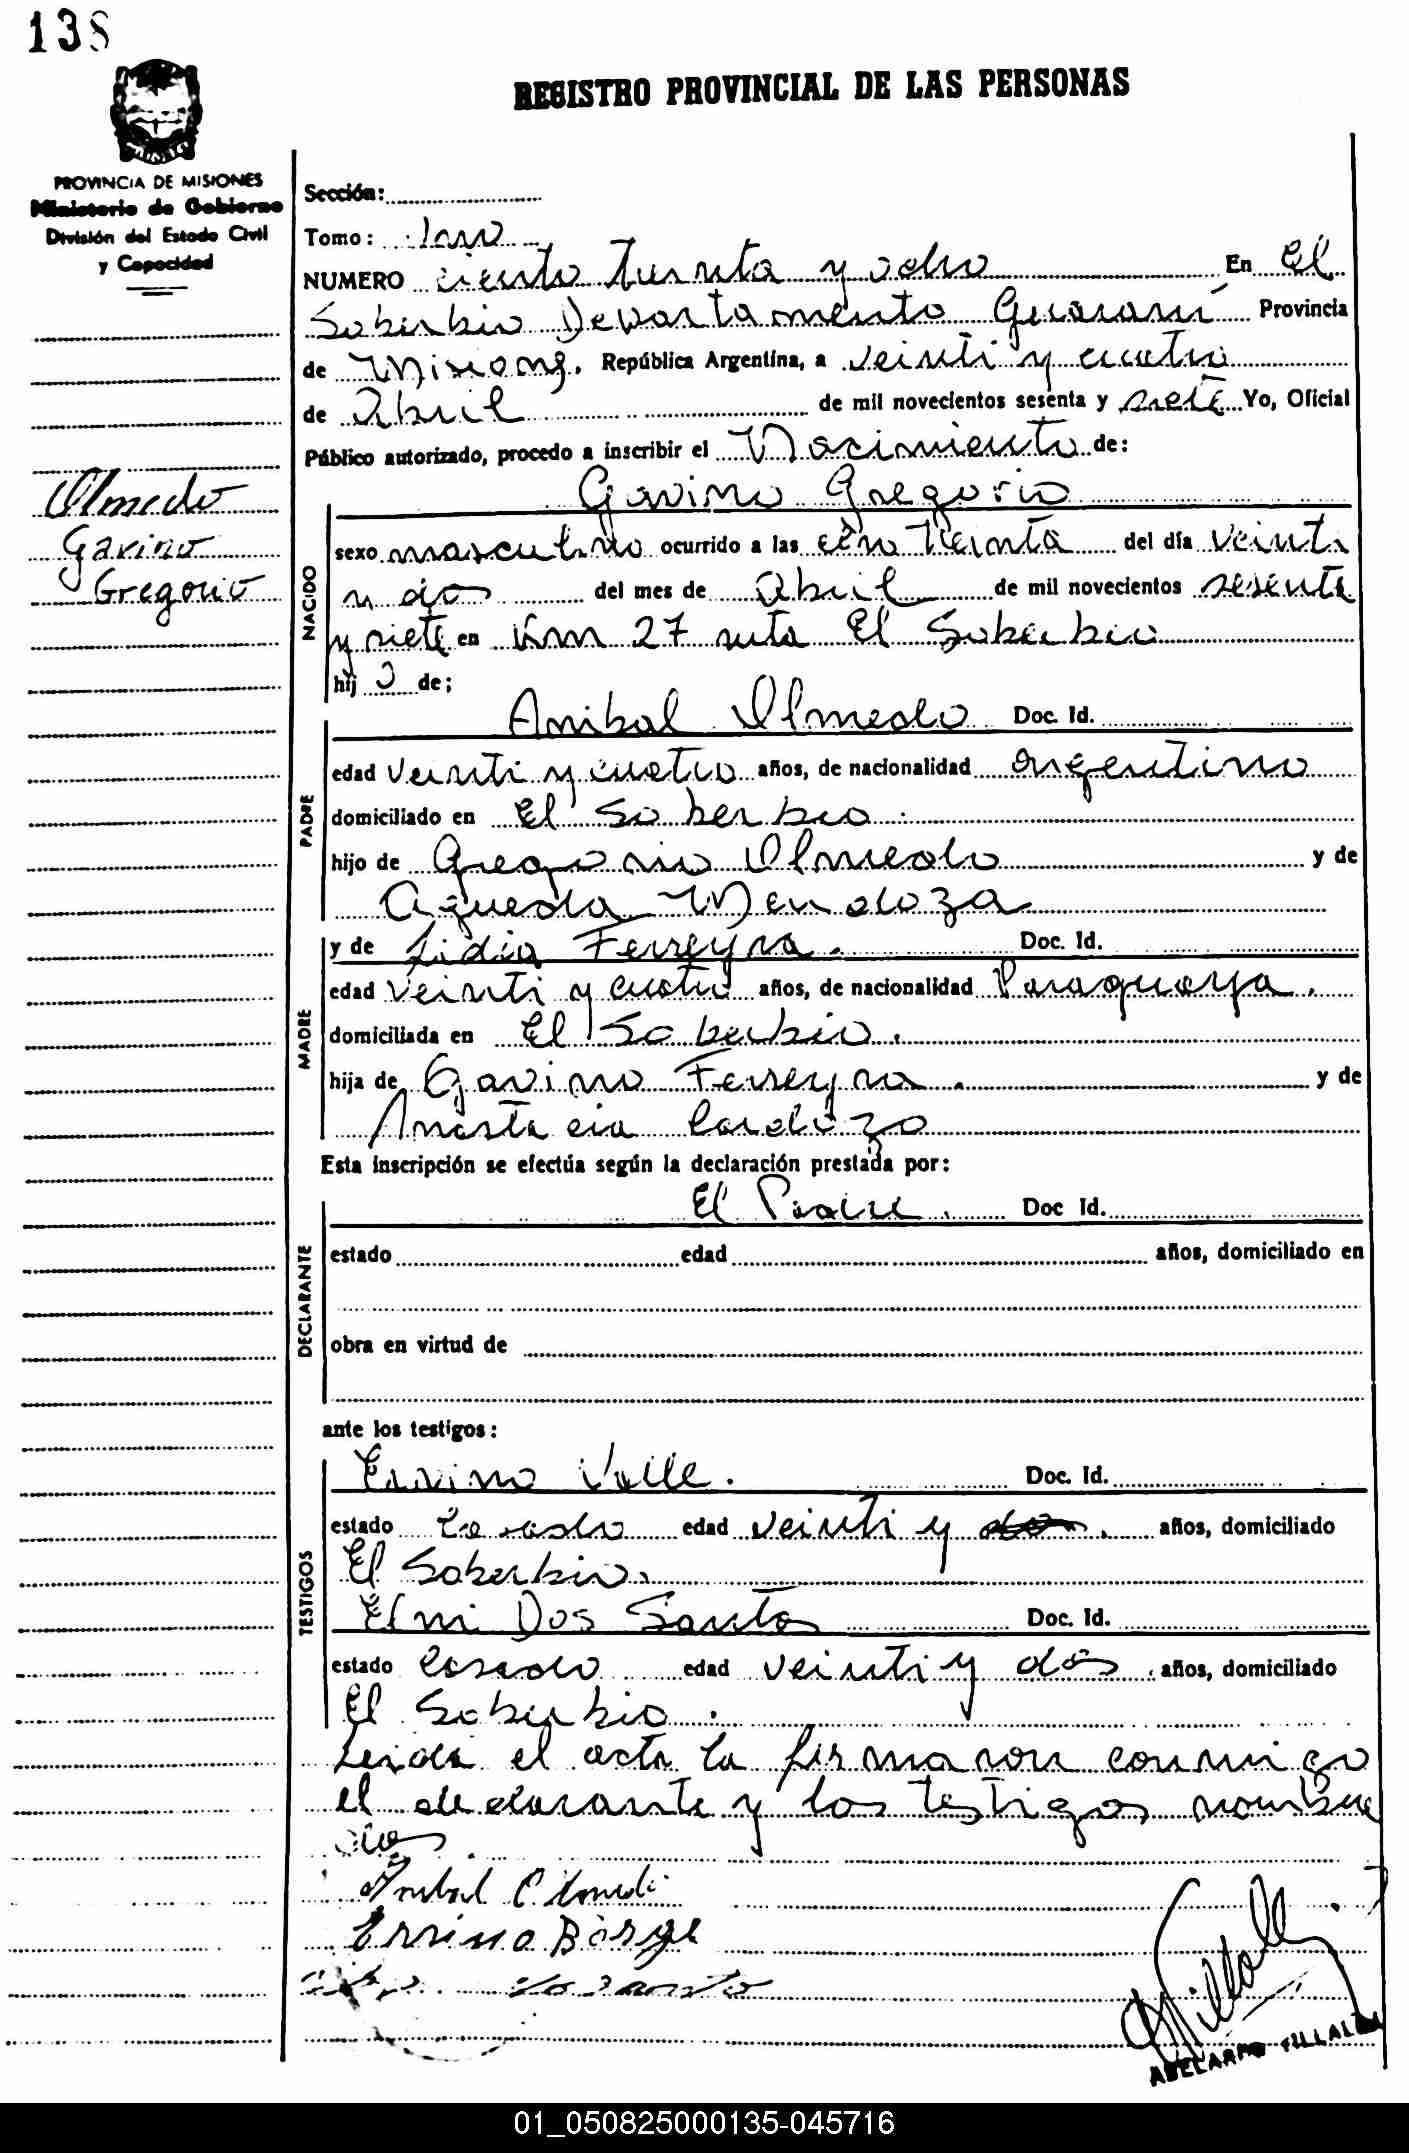 138
REGISTRO PROVINCIAL DE LAS PERSONAS
PROVINCIA DE MISIONES
Ministerio de Gobierno
División del Estado Civil
y Capacidad
Sección:
Tomo: 1
NUMERO ciento treinta y ocho En El
Soberbio Departamento Guarani Provincia
de Misiones, República Argentina, a veinti y cuatro
de Abril de mil novecientos sesenta y siete Yo, Oficial
Público autorizado, procedo a inscribir el Nacimiento de:
Olmedo
Gavino
Gregorio
Gavino Gregorio
NACIDO
sexo masculino ocurrido a las treinta del día veinti
y dos del mes de Abril de mil novecientos sesenta
y siete en Km 27 ruta El Soberbio
hij o de;
PADRE
Anibal Olmedo Doc. Id.
edad veinti y cuatro años, de nacionalidad argentino
domiciliado en El Soberbio.
hijo de Gregorio Olmedo y de
Agueda Mendoza
MADRE
y de Lidia Ferreyra. Doc. Id.
edad veinti y cuatro años, de nacionalidad Paraguaya.
domiciliada en El Soberbio.
hija de Gavino Ferreyra. y de
Anastacia Cardozo
Esta inscripción se efectúa según la declaración prestada por:
DECLARANTE
El Padre. Doc Id.
estado edad años, domiciliado en
obra en virtud de
ante los testigos:
TESTIGOS
Ervino Valle. Doc. Id.
estado Casado edad veinti y años, domiciliado
El Soberbio.
Elmi Dos Santos Doc. Id.
estado Casado edad veinti y dos años, domiciliado
El Soberbio.
Leida el acta la firmaron conmigo
el declarante y los testigos nombra
dos
Anibal Olmedo
Ervino Borge
Villalba
ABELARDO VILLALBA
01_050825000135-045716